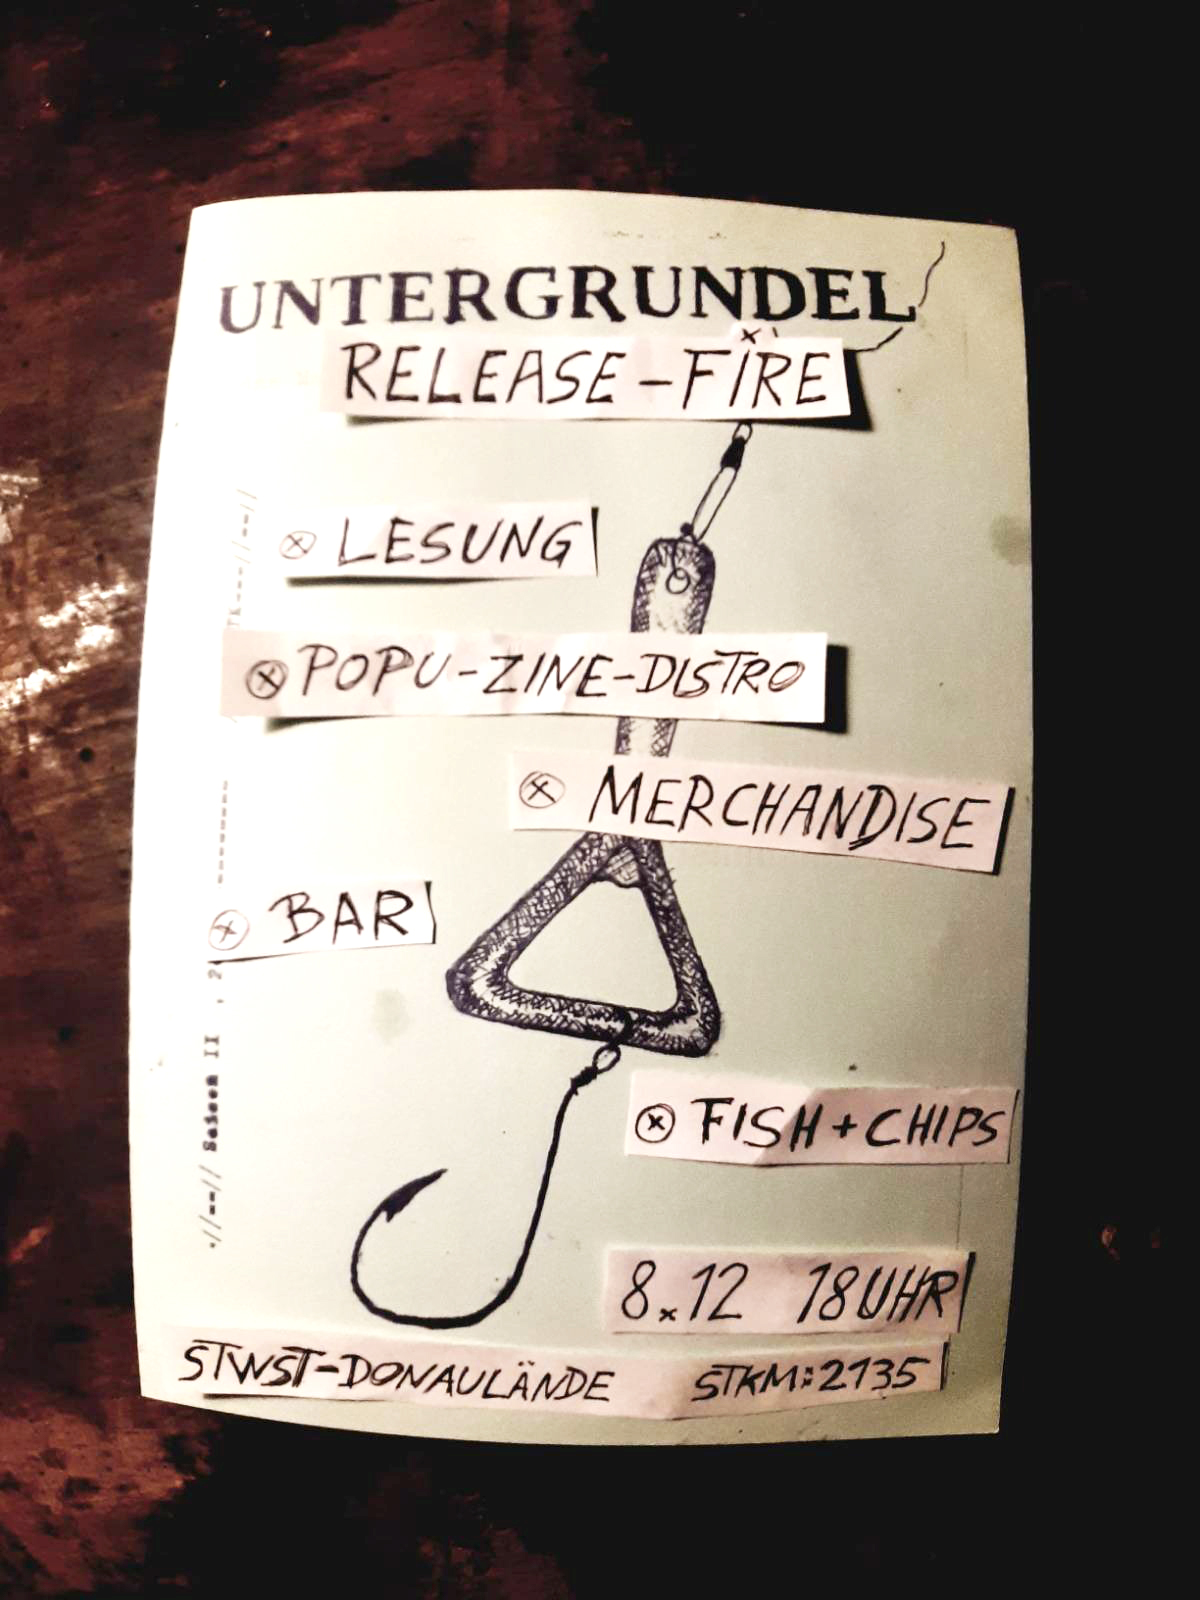 UNTERGRUNDEL
RELEASE-FÏRE
ⓧ LESUNG
ⓧ POPU-ZINE-DISTRO
ⓧ MERCHANDISE
ⓧ BAR
ⓧ FISH + CHIPS
8.12 18 UHR
STWST-DONAULÄNDE STKM:2135
//==// Saison II